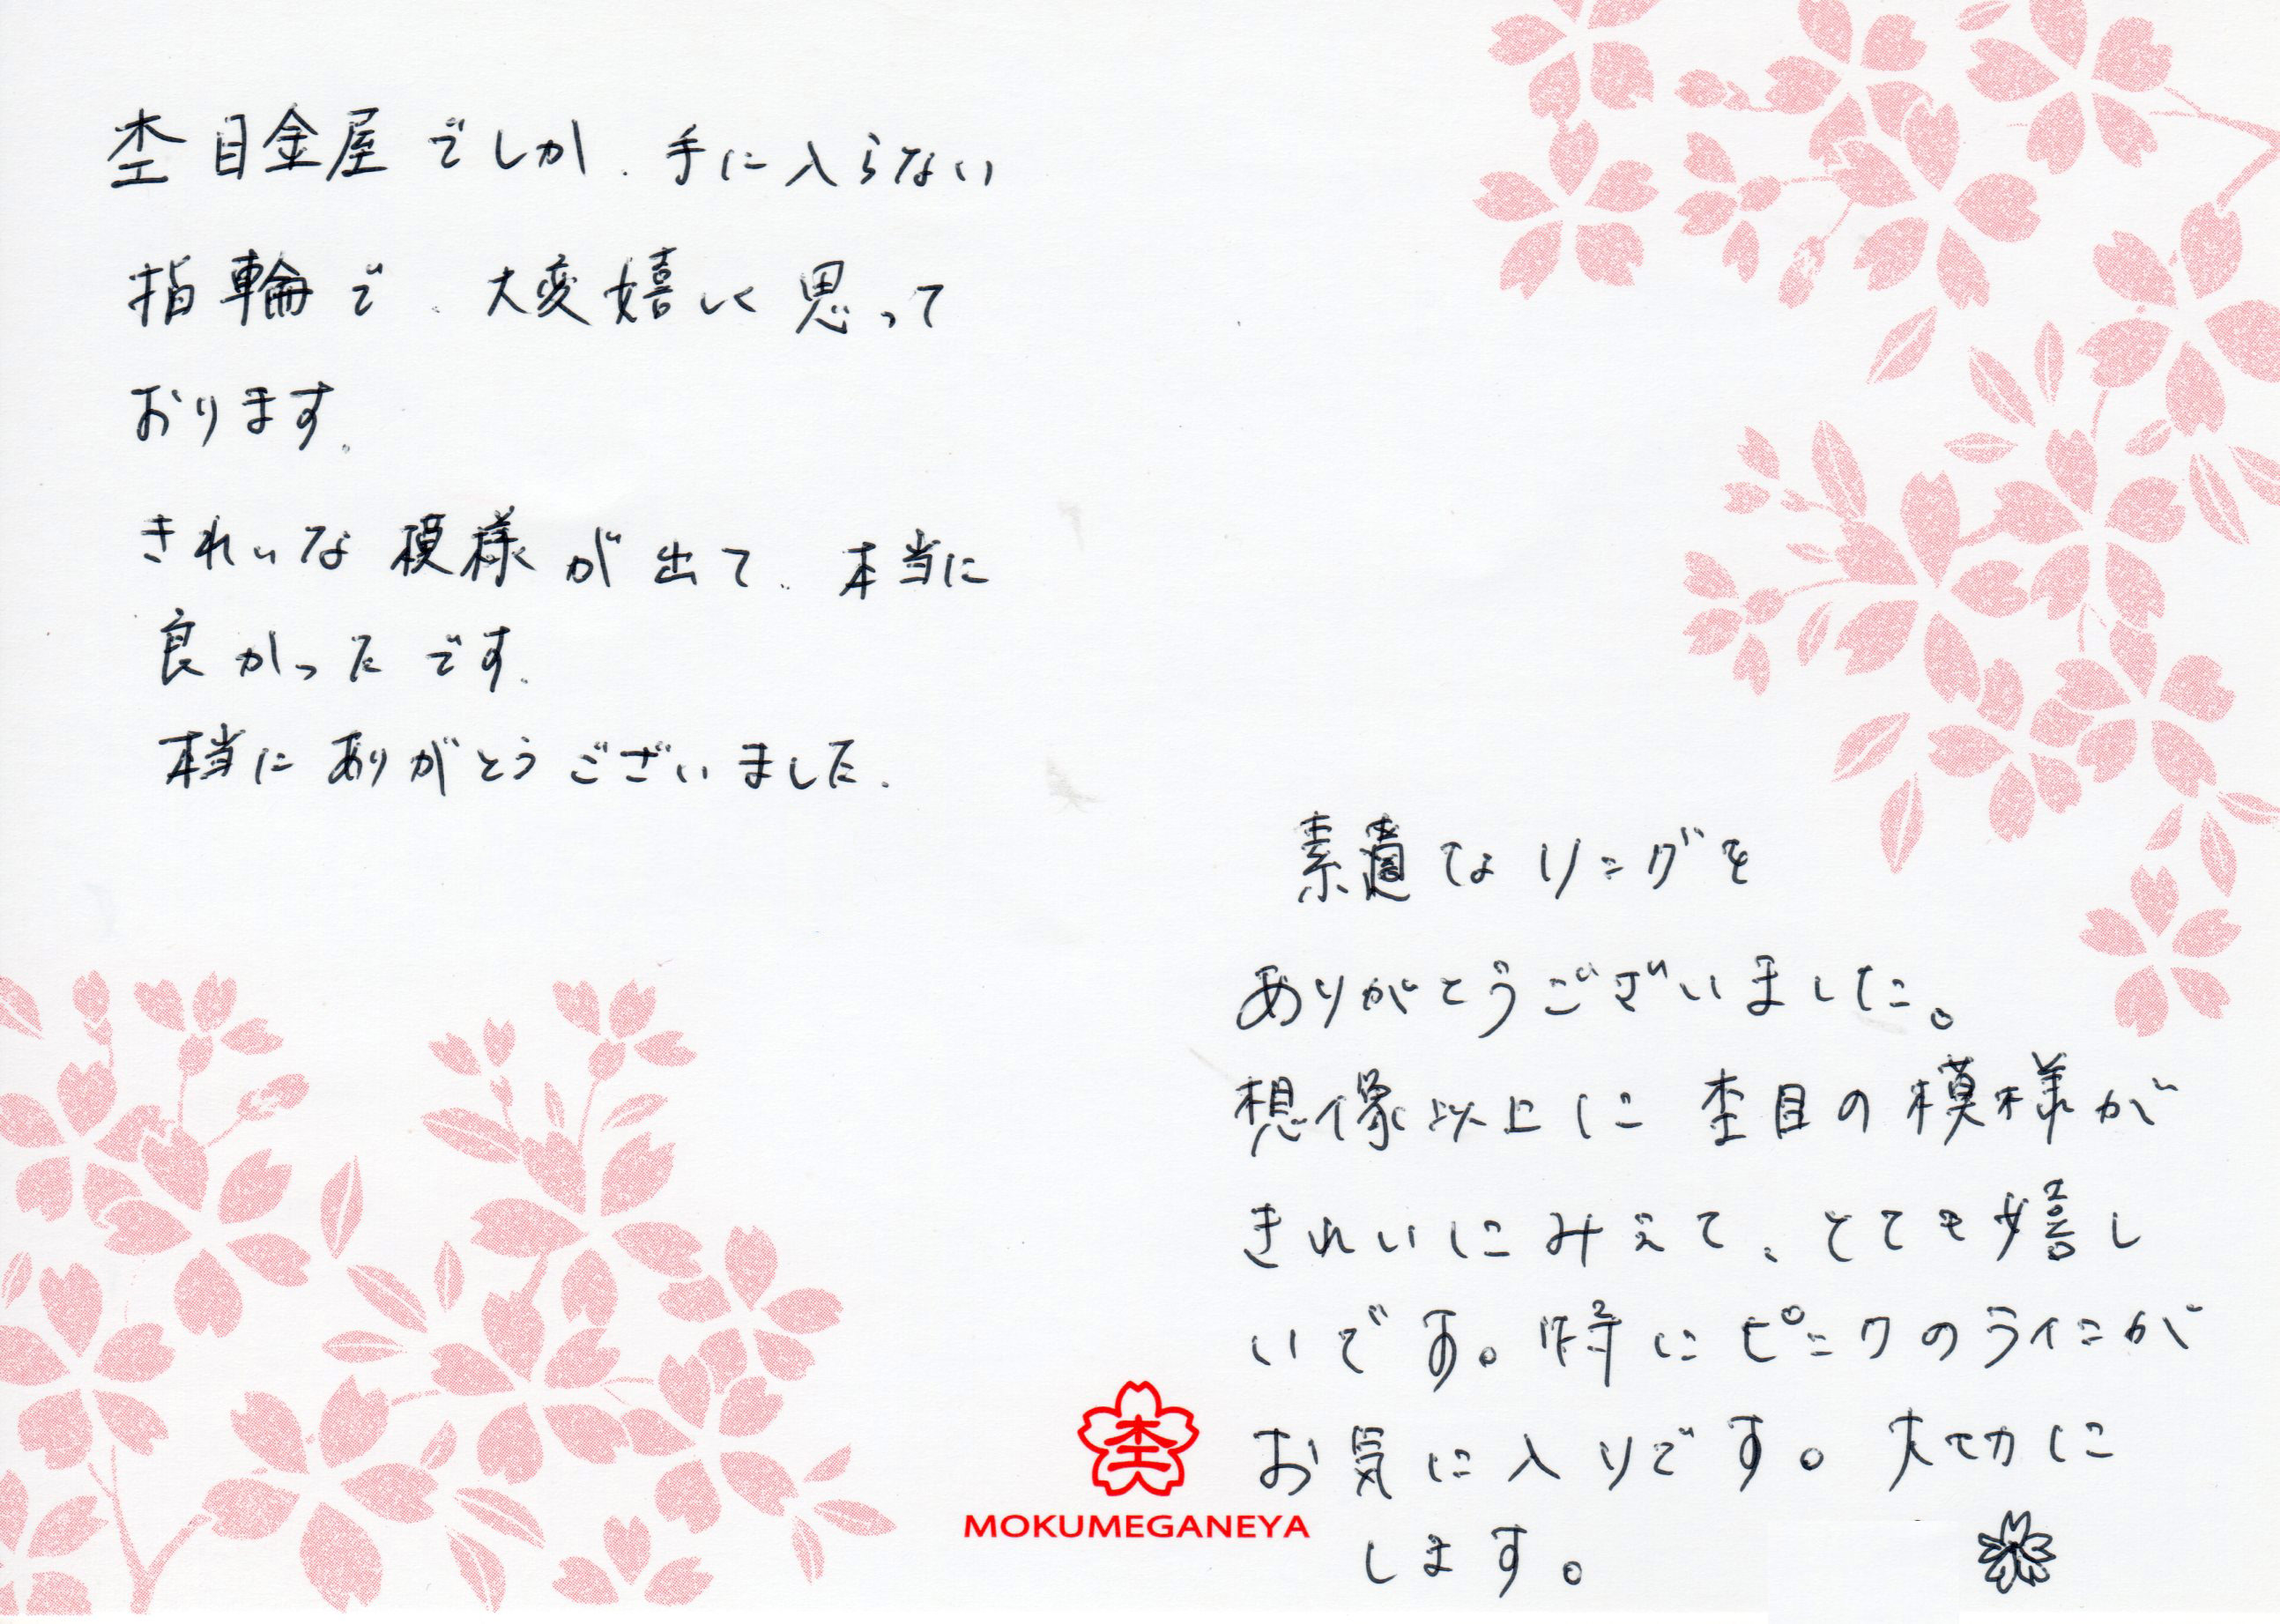 杢目金屋でしか、手に入らない
指輪で、大変嬉しく思って
おります。
きれいな模様が出て、本当に
良かったです。
本当にありがとうございました。
素適なリングを
ありがとうございました。
想像以上に杢目の模様が
きれいにみえて、とても嬉し
いです。特にピンクのラインが
お気に入りです。大切に
します。
杢
MOKUMEGANEYA